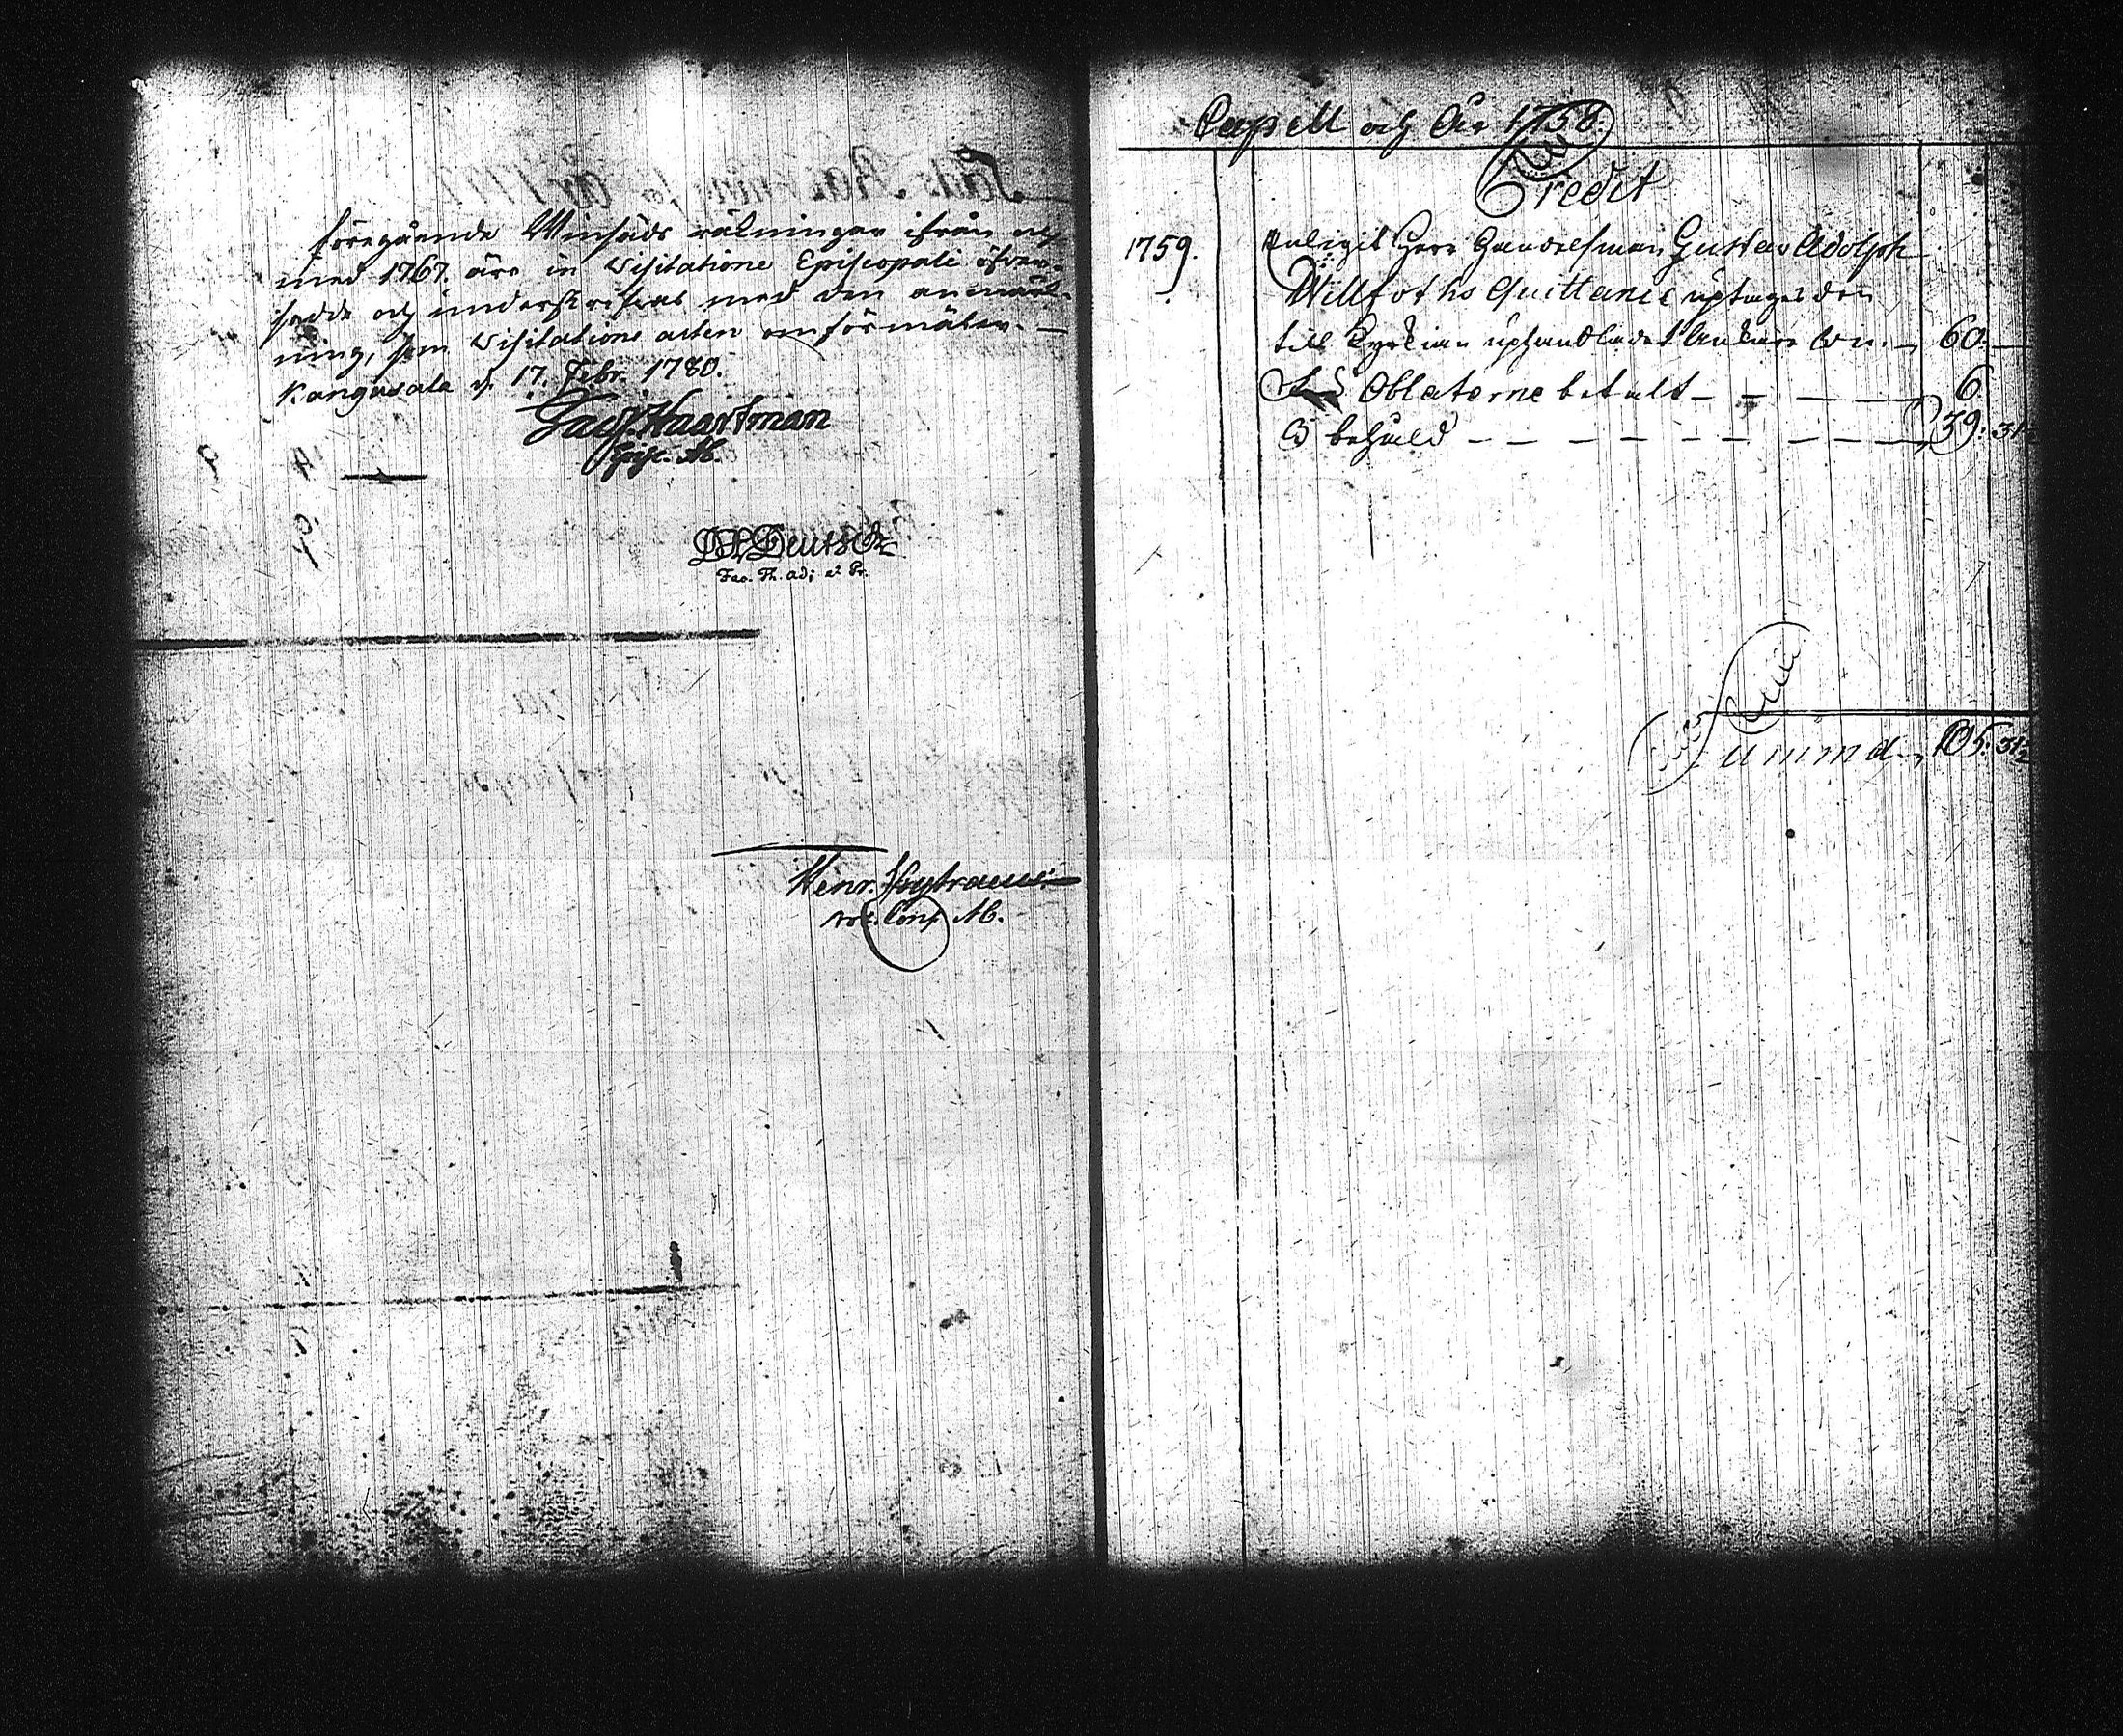 föregående Winsäds räkningar ifrån och
med 1767. äro in Visitatione Episcopali öfver-
sedde och underskrifvas med den anmärk-
ning, som Visitations acten omförmäler. —
Kangasala d. 17. Febr. 1780.
Jac. Haartman
Episc. Ab.
Deutsch
Fac. Th. adj et Pr.
Henr.
Not. Cons. Ab.
Capell och År 1758.
Credit
1759. Enligit Herr Handelsman Gustav Adolph
Willfoths Quittance uptages den
till Kyrkian uphandlade Ankare Win. — 60. —
Oblaterne betalt — — — 6
behåld — — — — — — 39: 31½
Summa — 105: 31½